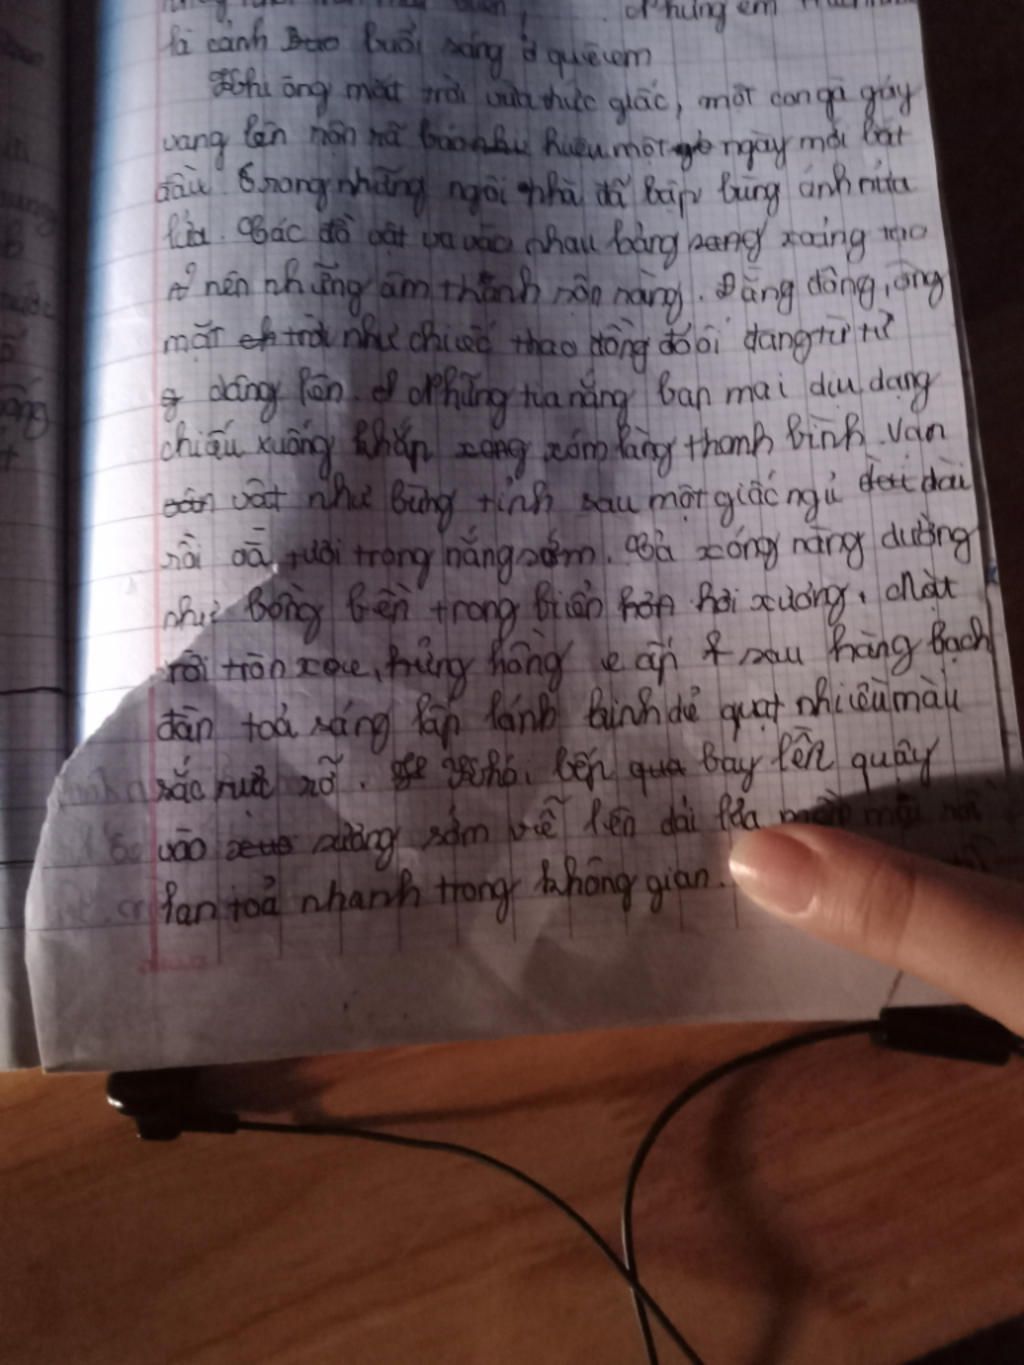 Nhưng em
là cảnh buổi sáng ở quê em
Khi ông mặt trời vừa thức giấc, một con gà gáy
vang lên rộn rã báo hiệu một ngày mới bắt
đầu Trong những ngôi nhà đã bập bùng ánh
lửa. Các đồ vật va vào nhau xoảng tạo
nên những âm thanh rộn ràng. Đằng đông, ông
mặt trời như chiếc thao đồng đỏ ối đang từ từ
dâng lên. Những tia nắng ban mai dịu dạng
chiếu xuống khắp xóm làng thanh bình. Vạn
vật như bừng tỉnh sau một giấc ngủ dài
rồi tười trong nắng sớm. Cả xóng nàng dường
như bồng bền trong biển hơi xương. Mặt
rời tròn xoe, hửng hồng e ấp sau hàng bạch
đàn toả sáng lấp lánh hinh dẻ quạt nhiều màu
sắc rực rỡ. Khói bếp bay lên quây
vào sương sớm vẽ lên dải lụa
lan toả nhanh trong không gian.